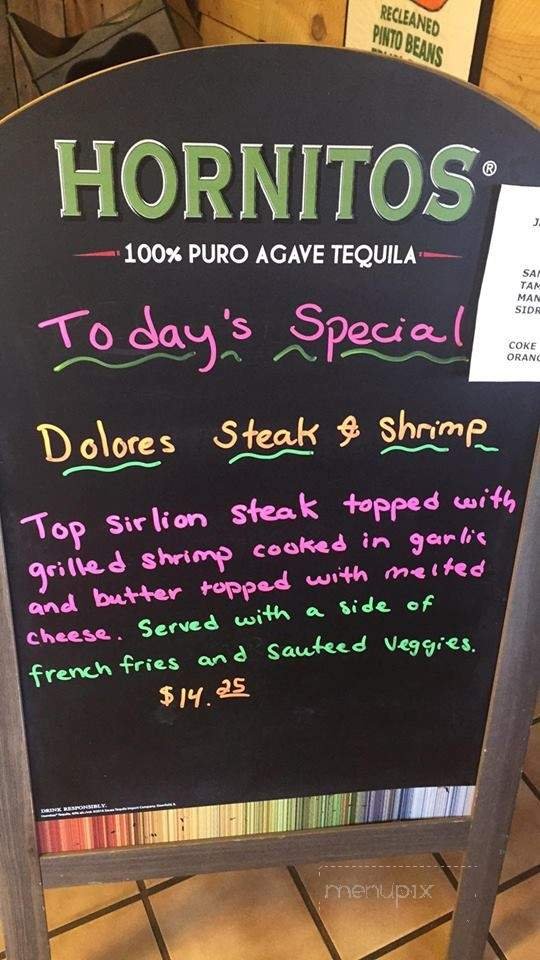 RECLEANED
PINTO BEANS
HORNITOS®
100% PURO AGAVE TEQUILA
Today's Special
Dolores Steak & Shrimp
Top sirlion steak topped with
grilled shrimp cooked in garlic
and butter topped with melted
cheese. Served with a side of
french fries and sauteed veggies.
$14.25
SAN
TAM
MAN
SIDR
COKE
ORANG
DRINK RESPONSIBLY.
menupix